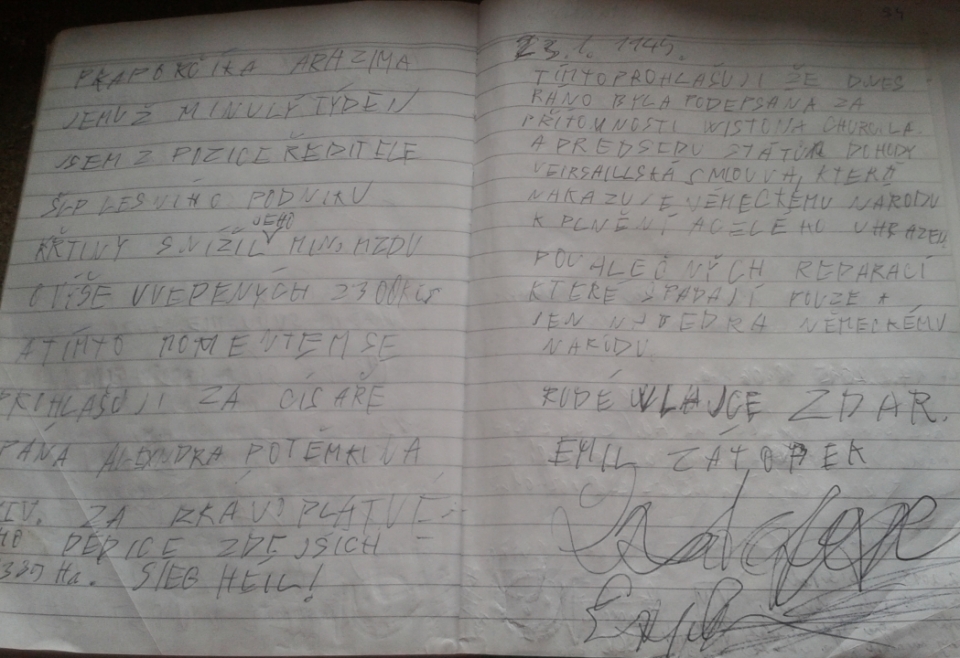 PRAPORČÍKA ARAZIMA
JEMUŽ MINULÝ TÝDEN
JSEM Z POZICE ŘEDITELE
ŠLP LESNÍHO PODNIKU
KŘTINY SNÍŽIL JEHO MIN. MZDU
O VÝŠE UVEDENÝCH 2300 Kčs
A TÍMTO MOMENTEM SE
PROHLAŠUJI ZA CÍSAŘE
PÁNA ALEXANDRA POTĚMKINA
XIV. ZA PRAVOPLATNÉ-
HO DĚDICE ZDEJŠÍCH
Ha. SIEG HEIL!
54
23.1. 1145.
TÍMTO PROHLAŠUJI ŽE DNES
RÁNO BYLA PODEPSÁNA ZA
PŘÍTOMNOSTI WISTONA CHURCILA
A PŘEDSEDŮ STÁTŮ DOHODY
VEIRSAILLSKÁ SMLOUVA, KTERÁ
NAKAZUJE NĚMECKÉMU NÁRODU
K PLNĚNÍ A CELÉMU UHRAZENÍ
POVÁLEČNÝCH REPARACÍ
KTERÉ SPADAJÍ POUZE A
JEN N NĚMECKÉMU
NÁRODU
RUDÉ VLAJCE ZDAR.
EMIL ZÁTOPEK